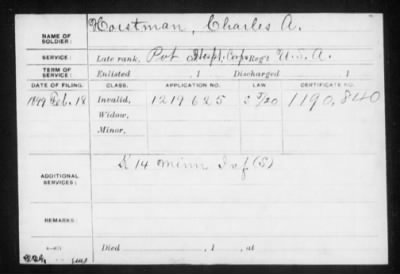 Horstman, Charles A.
NAME OF SOLDIER:
SERVICE: Late rank, Pvt Hospl. Corps Regt U.S.A.
TERM OF SERVICE: Enlisted , 1 Discharged , 1
DATE OF FILING. CLASS. APPLICATION NO. LAW. CERTIFICATE NO.
1899 Feb. 18 Invalid, 1219625 1190,840
Widow,
Minor,
ADDITIONAL SERVICES: K 14 Minn Inf (S)
REMARKS:
Died , 1 , at